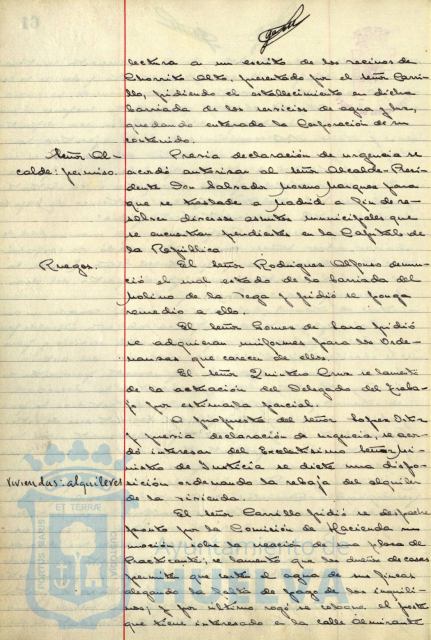 lectura a un escrito de los vecinos de
Chorrito Alto, presentado por el señor Carri-
llo, pidiendo el establecimiento en dicha
barriada de los servicios de agua y luz,
quedando enterada la Corporación de su
contenido.
Señor Al-
calde: permiso.
Previa declaración de urgencia se
acordó autorizar al señor Alcalde-Presi-
dente Don Salvador Moreno Marquez para
que se traslade a Madrid a fin de re-
solver diversos asuntos municipales que
se encuentran pendientes en la Capital de
la República.
Ruegos.
El señor Rodriguez Alfonso denun-
ció el mal estado de la barriada del
Molino de la Vega y pidió se ponga
remedio a ello.
El señor Gomez de Lara pidió
se adquieran uniformes para los Orde-
nanzas que carecen de ellos.
El señor Quintero Cruz se lamentó
de la actuación del Delegado del Traba-
jo por estimarla parcial.
Viviendas: alquileres
A propuesta del señor Lopez
y previa declaración de urgencia, se acor-
dó interesar del Excelentisimo señor Mi-
nistro de Justicia se dicte una dispo-
sición ordenando la rebaja del alquiler
de la vivienda.
El señor Carrillo pidió se despache
pronto por la Comisión de Hacienda su
moción sobre la creación de una plaza de
Practicante; se lamentó que los dueños de casas
permitan que corten el agua de sus fincas
alegando la falta de pago de los inquili-
nos; y por último rogó se coloque el poste
que tiene interesado en la calle Almirante
Ayuntamiento de